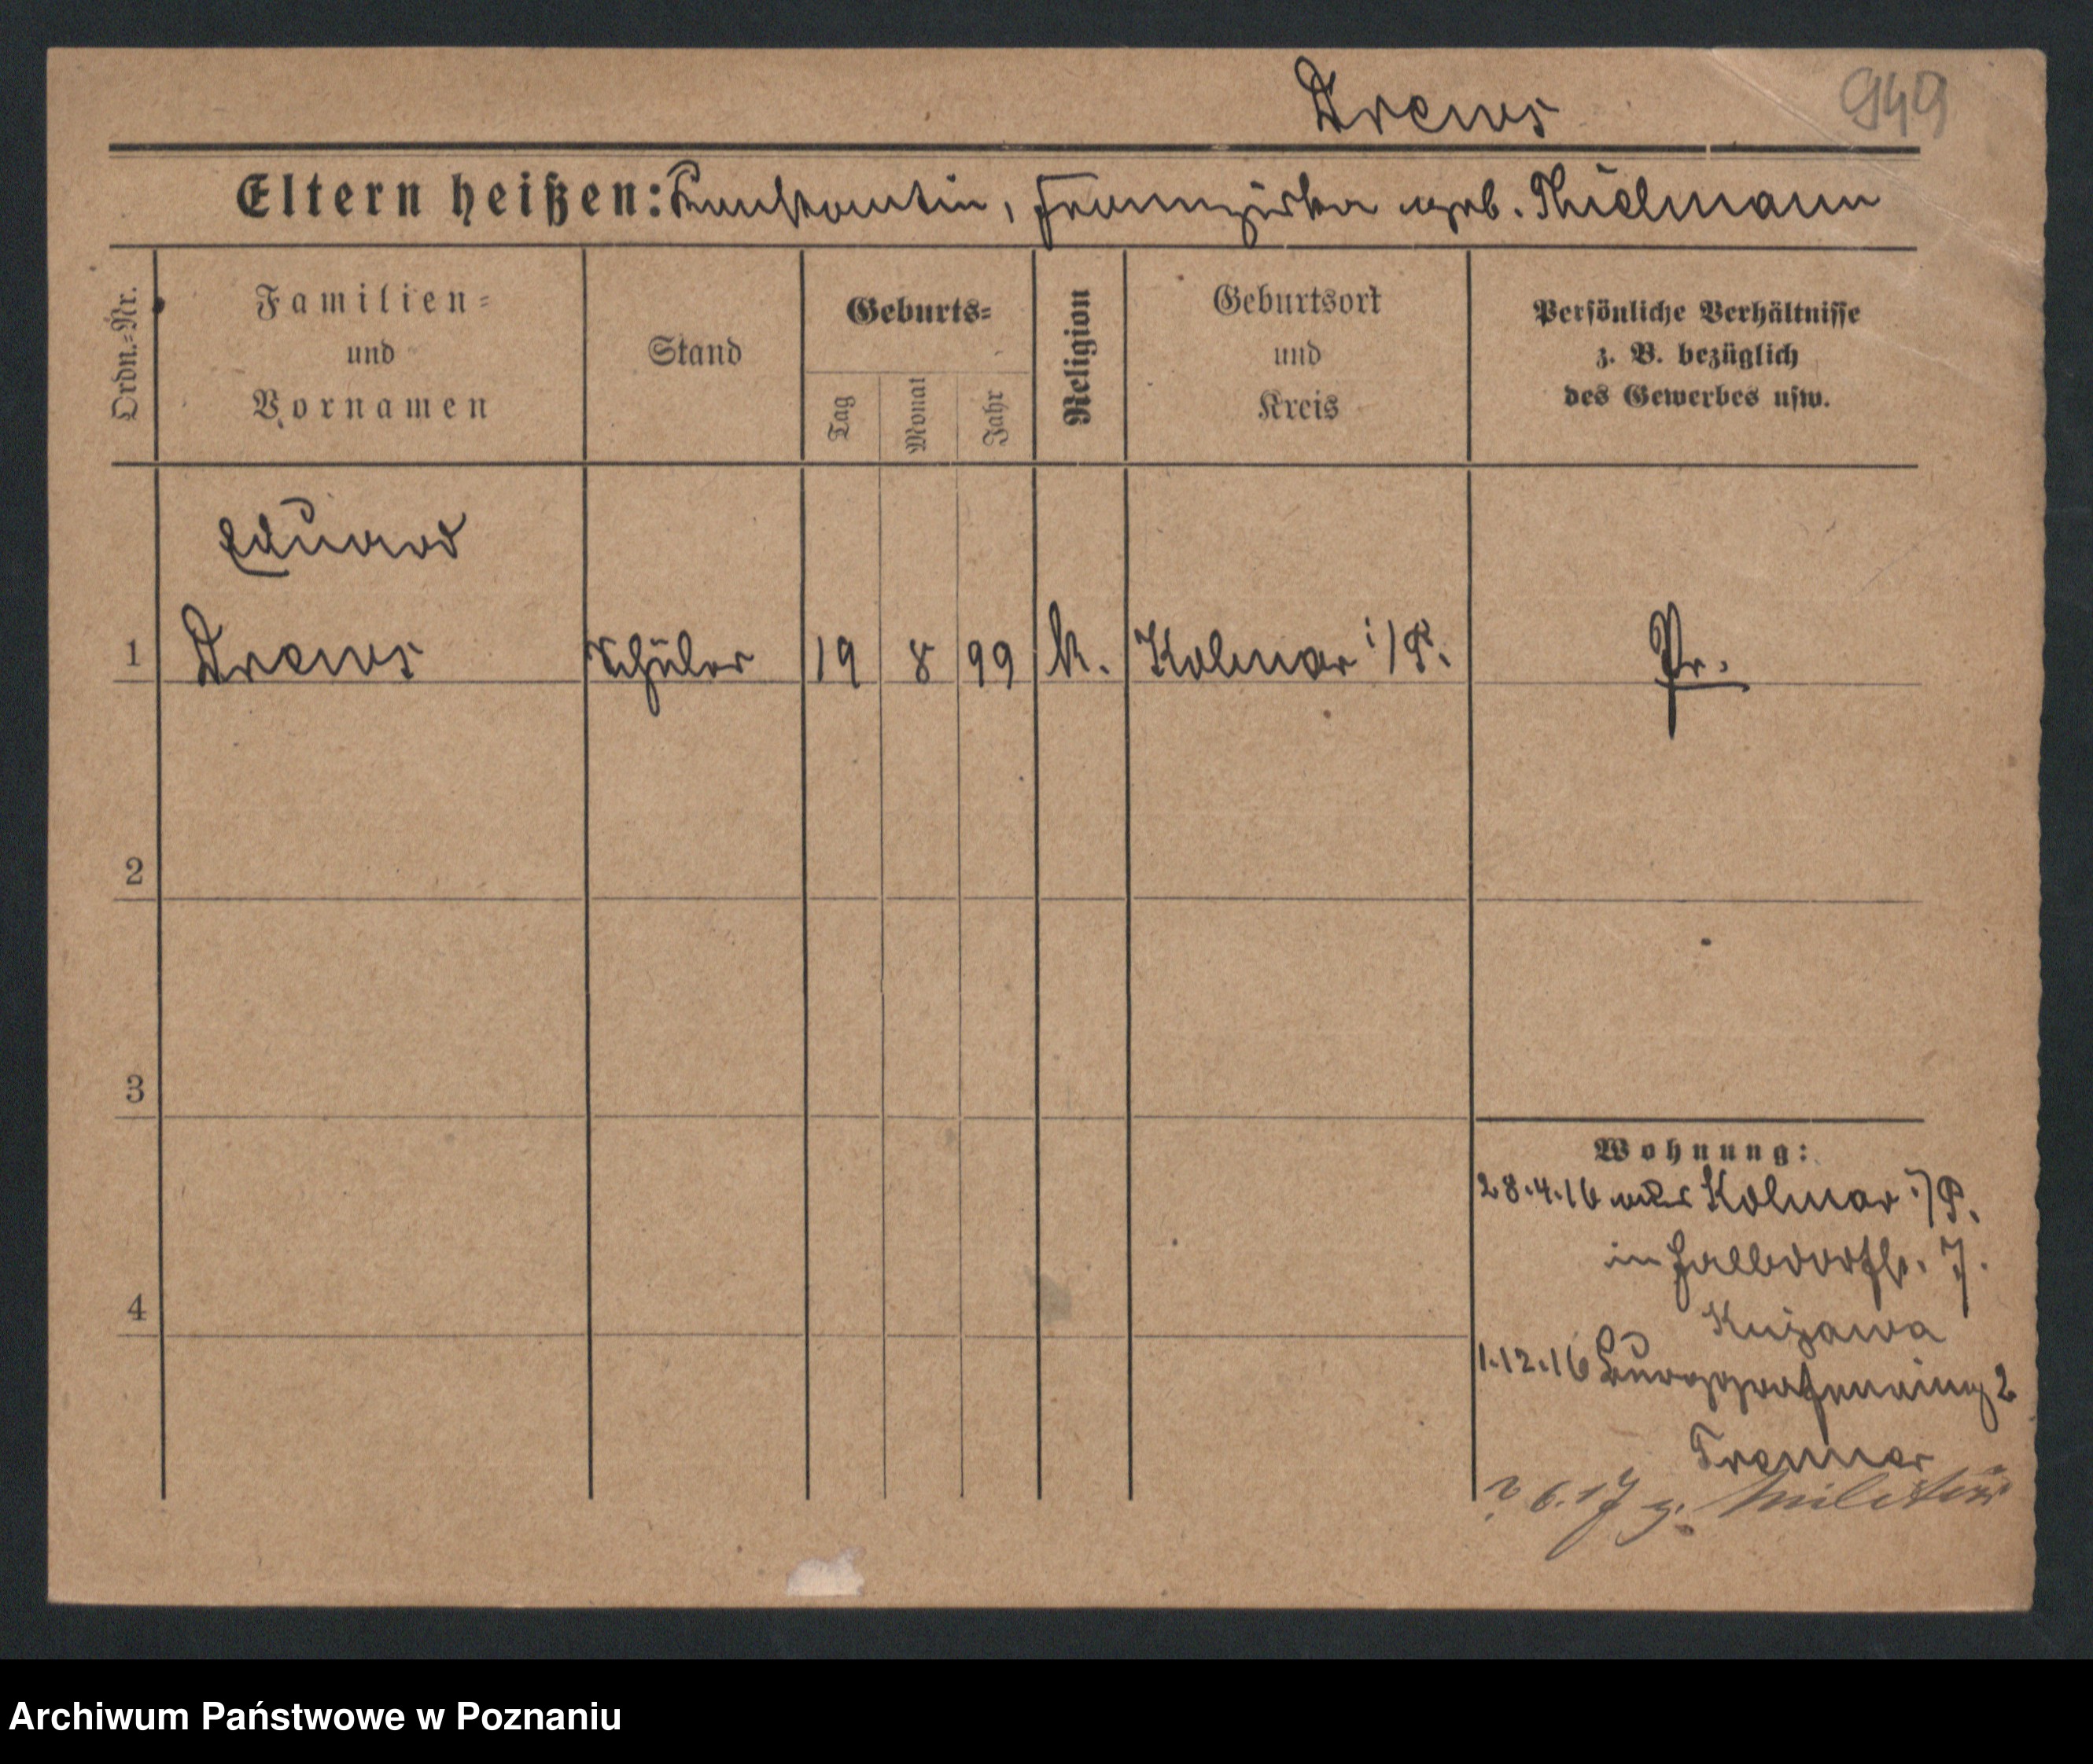 Drews
949
Eltern heißen: Konstantin, Franziska geb. Thielmann
Ordn.-Nr.
Familien-
und
Vornamen
Stand
Geburts-
Tag
Monat
Jahr
Religion
Geburtsort
und
Kreis
Persönliche Verhältnisse
z. B. bezüglich
des Gewerbes usw.
Eduard
1 Drews Schüler 19 8 99 k. Kolmar i/P. Pr.
2
3
4
Wohnung:
28.4.16 aus Kolmar i/P.
in Halbdorfstr. 7.
Kujawa
1.12.16 Burggrafenring 2
Tremmer
6.17 z. Militär
Archiwum Państwowe w Poznaniu